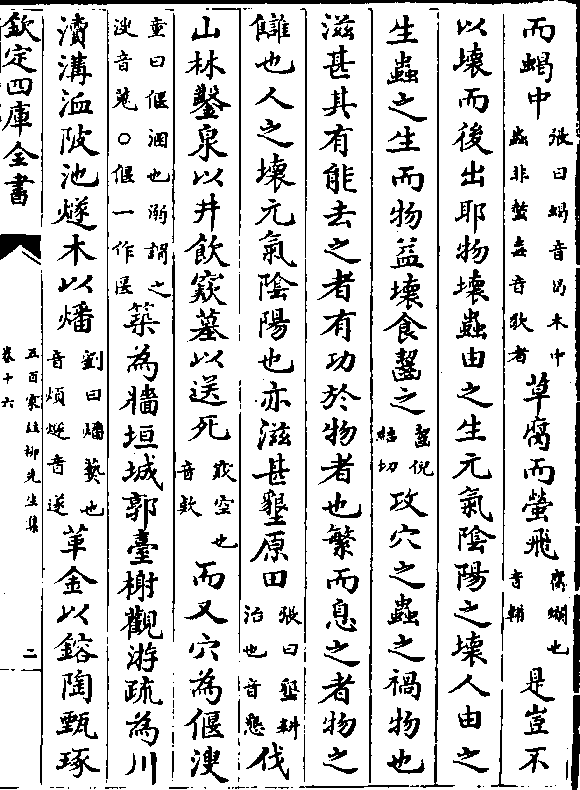 而蝎中張曰蝎音曷木中蟲非螫毒音歇者草腐而螢飛腐朽也音輔是豈不
以壞而後出耶物壞蟲由之生元氣陰陽之壞人由之
生蟲之生而物益壞食齧之齧倪結切攻穴之蟲之禍物也
滋甚其有能去之者有功於物者也繁而息之者物之
讎也人之壞元氣陰陽也亦滋甚墾原田張曰墾耕治也音懇伐
山林鑿泉以井飲窾墓以送死窾空也音欵而又穴為偃溲
童曰偃溷也溺謂之溲音蒐○偃一作匽築為牆垣城郭臺榭觀游疏為川
瀆溝洫陂池燧木以燔劉曰燔爇也音煩燧音遂革金以鎔陶甄琢
欽定四庫全書
五百家註柳先生集
卷十六
二